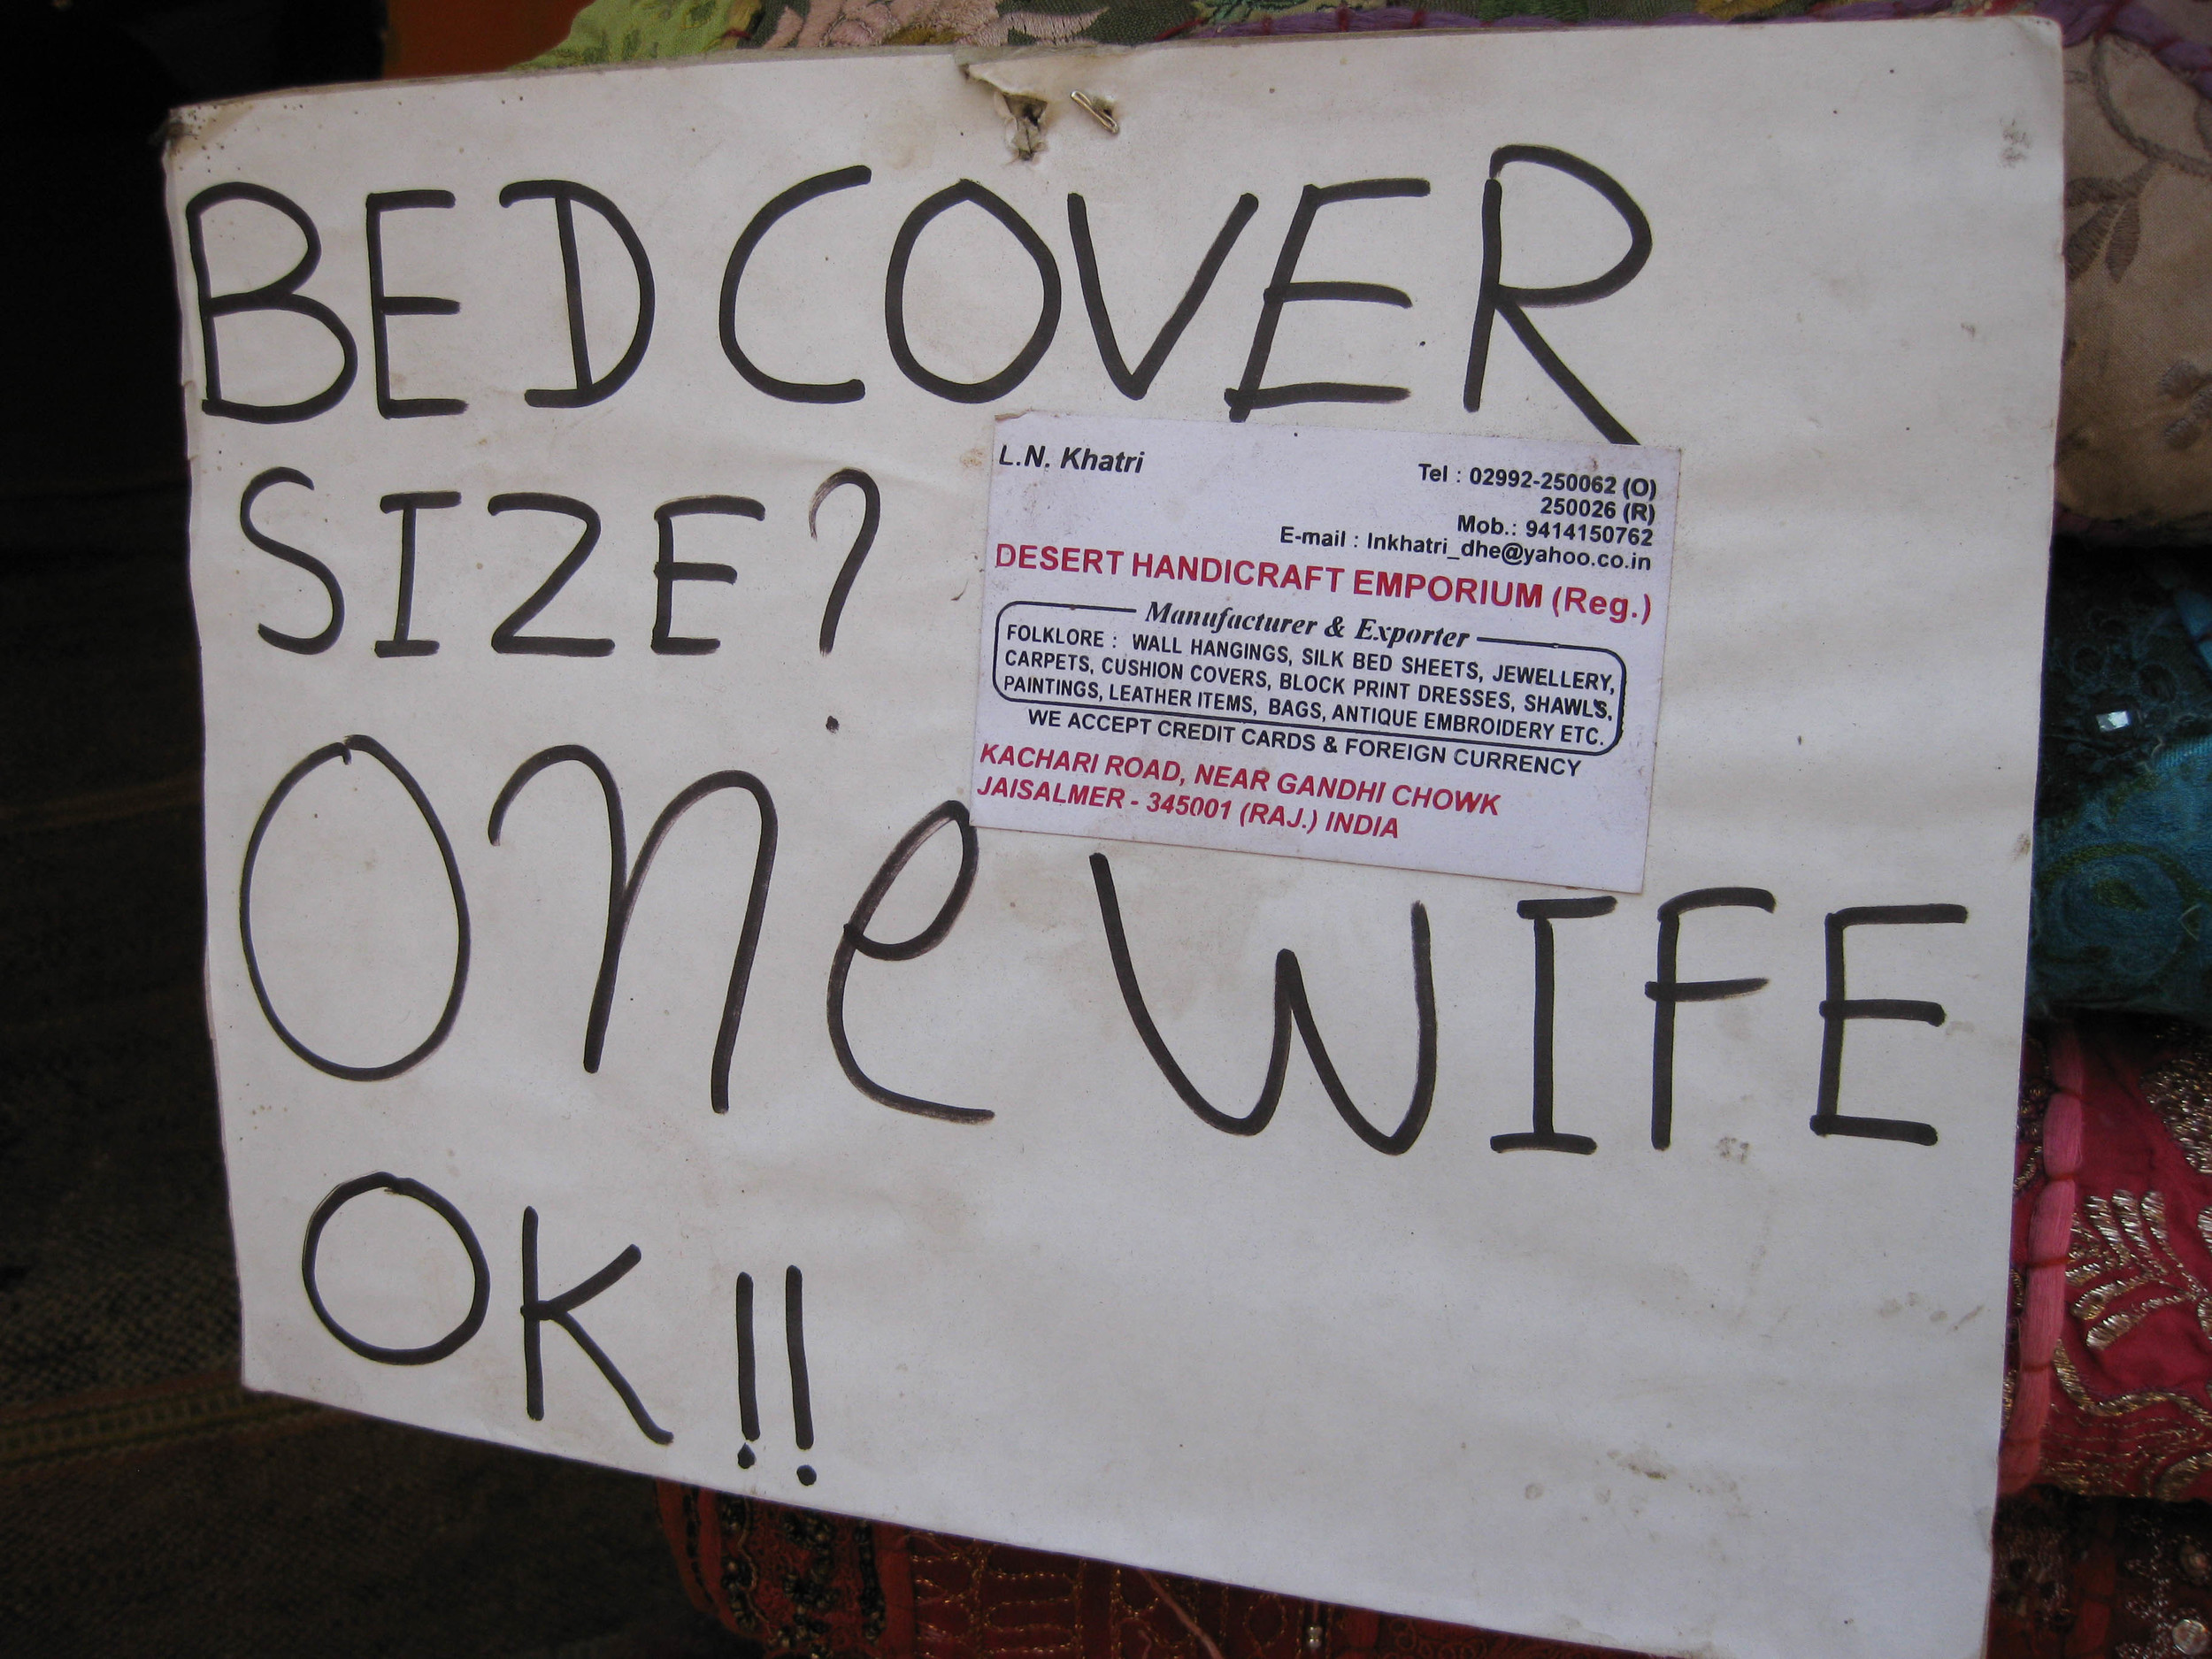 BED COVER
SIZE?
L.N. Khatri
Tel : 02992-250062 (O)
250026 (R)
Mob.: 9414150762
E-mail : lnkhatri_dhe@yahoo.co.in
DESERT HANDICRAFT EMPORIUM (Reg.)
Manufacturer & Exporter
FOLKLORE : WALL HANGINGS, SILK BED SHEETS, JEWELLERY,
CARPETS, CUSHION COVERS, BLOCK PRINT DRESSES, SHAWLS,
PAINTINGS, LEATHER ITEMS, BAGS, ANTIQUE EMBROIDERY ETC.
WE ACCEPT CREDIT CARDS & FOREIGN CURRENCY
KACHARI ROAD, NEAR GANDHI CHOWK
JAISALMER - 345001 (RAJ.) INDIA
One WIFE
OK!!